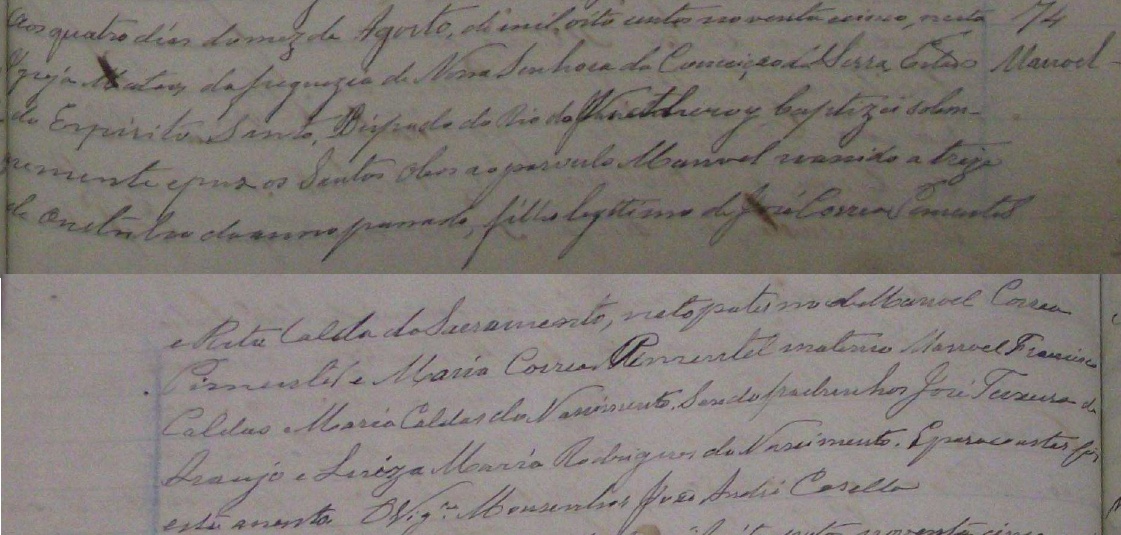 Aos quatro dias do mez de Agosto, de mil oito centos noventa e cinco, nesta 74
Igreja Matriz da freguezia de Nossa Senhora da Conceição da Serra, Estado Manoel
do Espirito Santo, Bispado do Rio de Nictheroy baptizei solem-
nemente e puz os Santos Oleos ao parvulo Manoel nascido a treze
de Outubro do anno passado, filho legitimo de José Correa Pimentel
e Rita Calda do Sacramento, neto paterno de Manoel Correa
Pimentel e Maria Correa Pimentel materno Manoel Francisco
Caldas e Maria Caldas do Nascimento. Sendo padrinhos José Teixeira de
Araujo e Luiza Maria Rodrigues do Nascimento. E para constar fiz
este assento O Vigro. Monsenhor José André Casella
noventa cinco